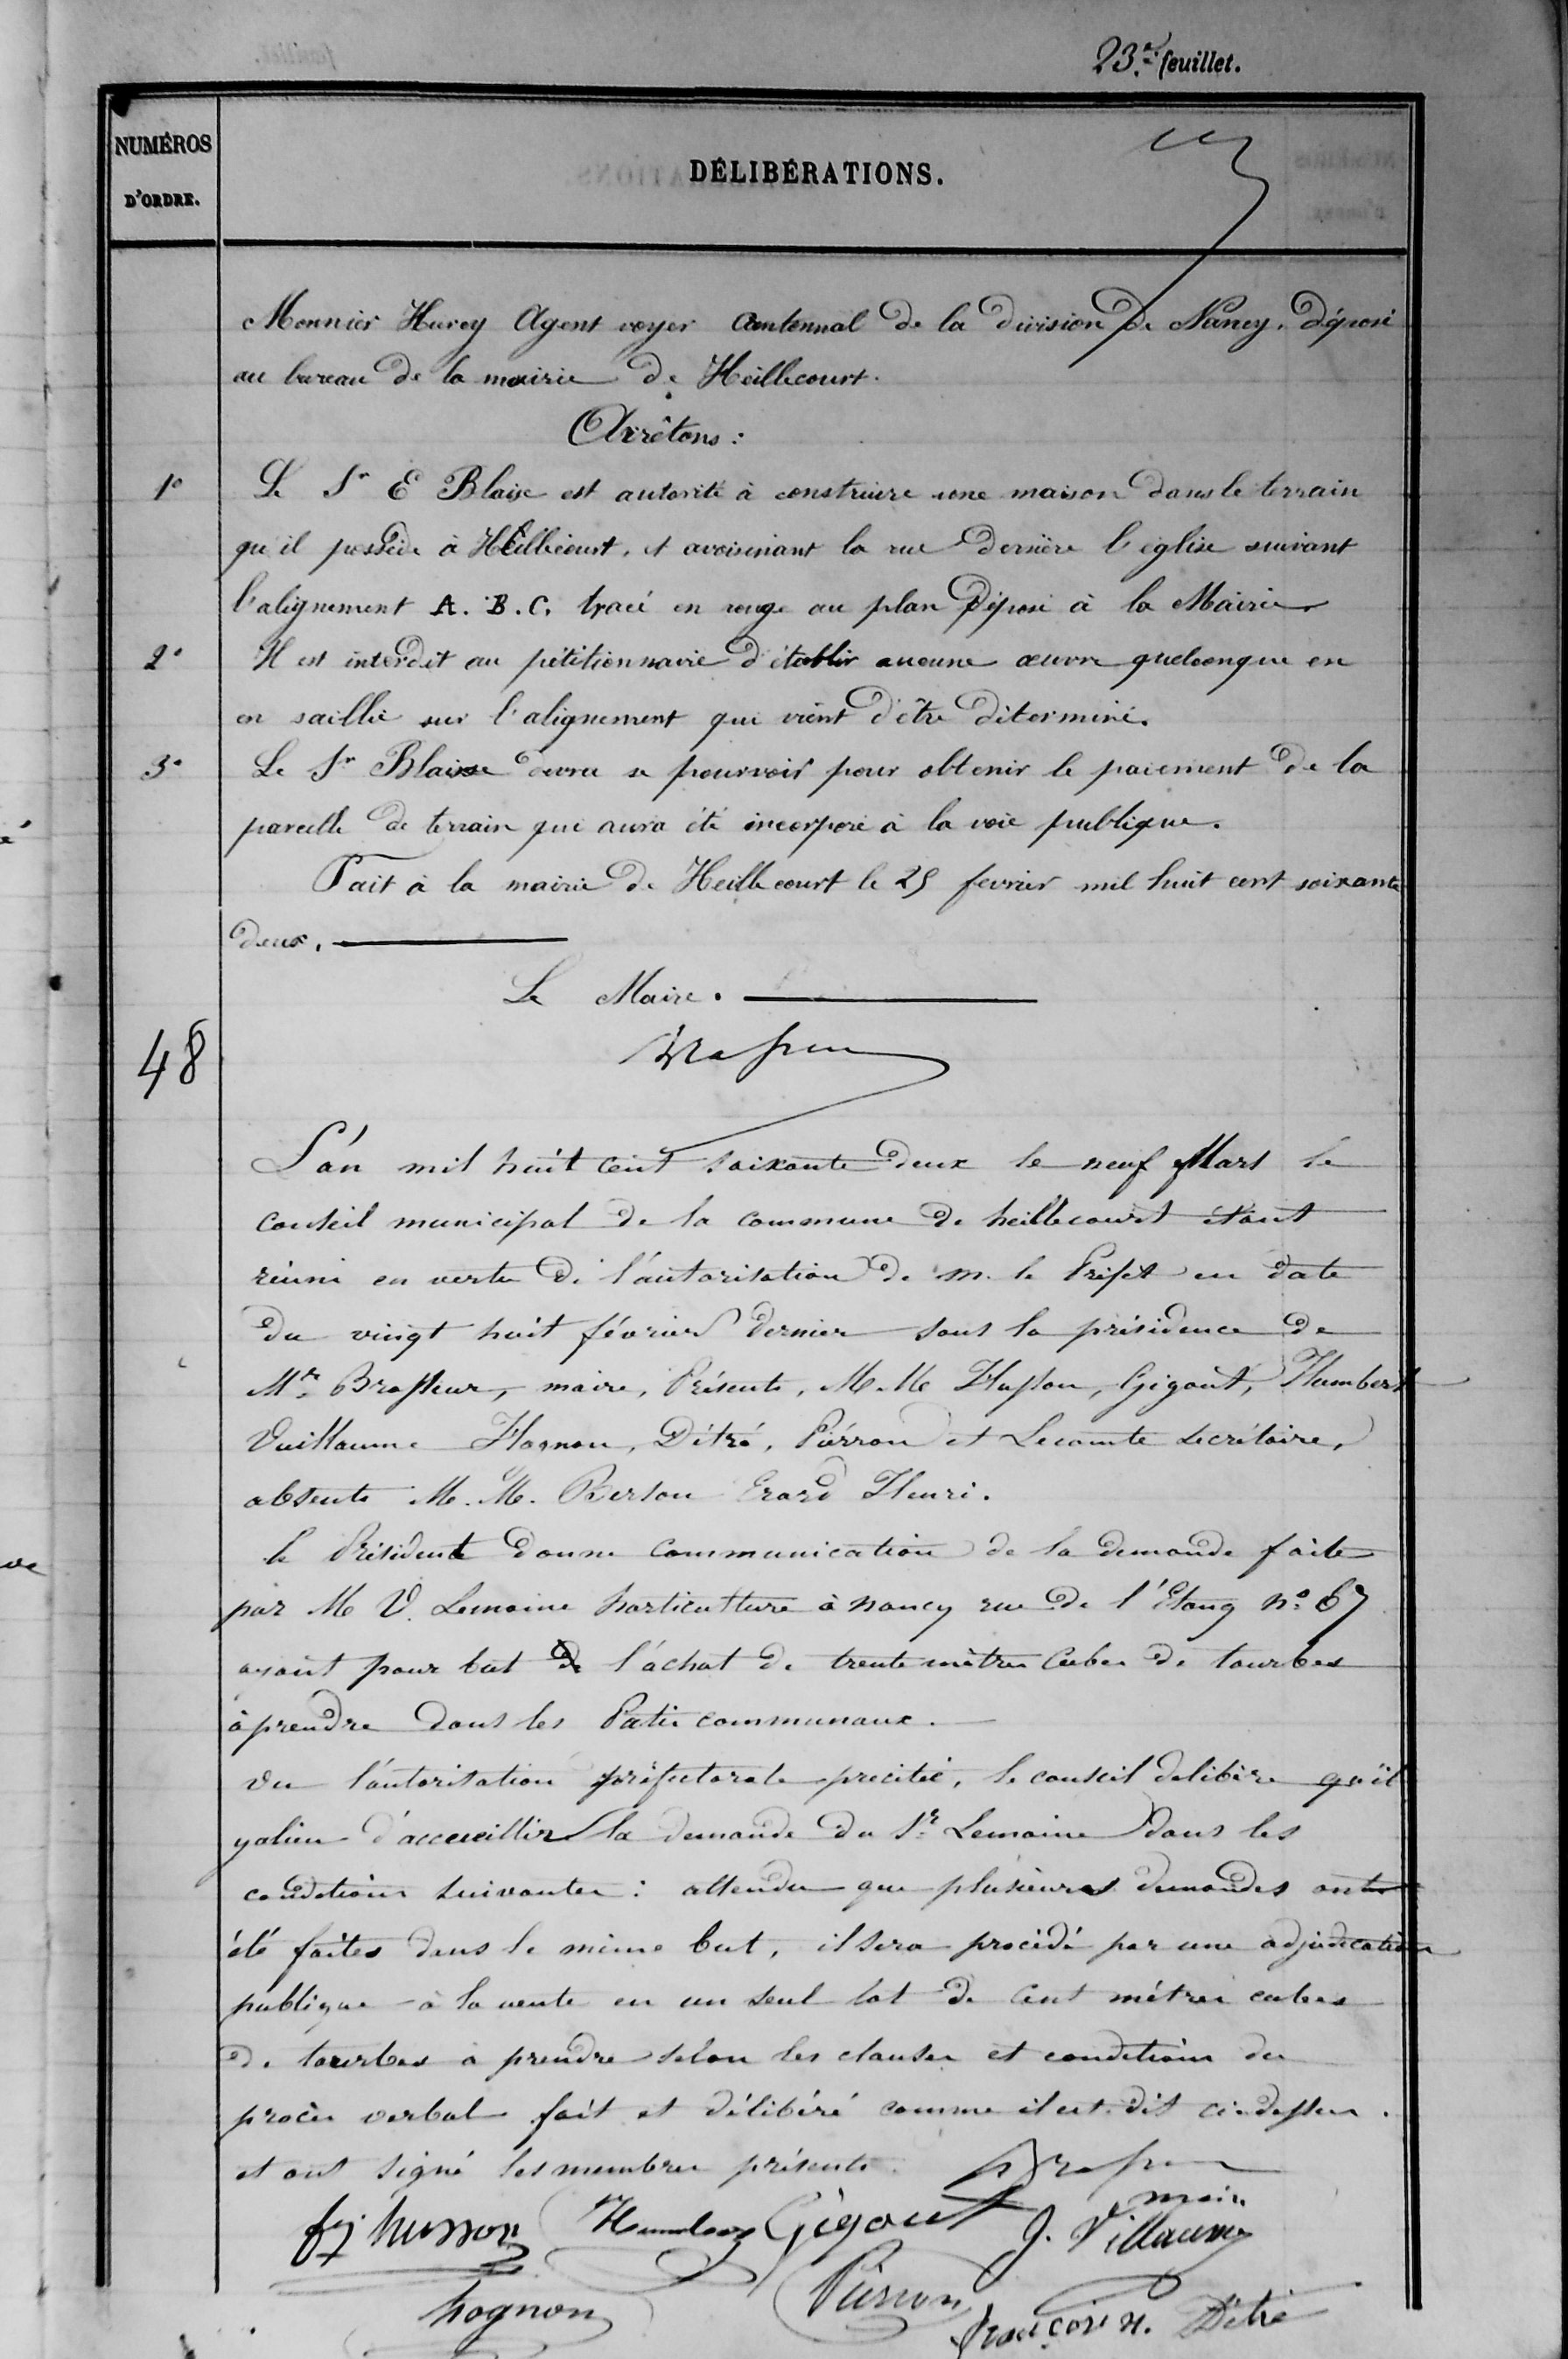 23.e feuillet.
NUMÉROS
D'ORDRE.
DÉLIBÉRATIONS.
Monnier Hurey Agent voyer Cantonnal de la division de Nancy. déposé
au bureau de la mairie de Heillecourt.
Arrêtons :
1º Le Sr E Blaise est autorité à construire une maison dans le terrain
qu'il possède à Heillecourt, et avoisinant la rue derrière l'eglise suivant
l'alignement A. B. C. tracé en rouge au plan déposé à la Mairie
2º Il est interdit au pétitionnaire d'établir aucune œuvre quelconque en
en saillie sur l'alignement qui vient d'être déterminé.
3º Le Sr Blaise devra se pourvoir pour obtenir le paiement de la
parcelle de terrain qui aura été incorporé à la voie publique.
Fait à la mairie de Heillecourt le 25 fevrier mil huit cent soixante
deux.
Le Maire.
48
L'an mil huit cent soixante deux le neuf Mars le
conseil municipal de la commune de heillecourt étant
réuni en vertu de l'autorisation de m. le Préfet en date
du vingt huit février dernier sous la présidence de
Mr. Brasseur, maire, Présents, M. M. Husson, Gigout, Humbert
Vuillaume Hognon, Détré, Piérron et Lecomte secrétaire,
absents M. M. Berson Erard Henri.
le Président donne communication de la demande faite
par M V. Lemoine horticulture à nancy rue de l'Etang nº 67
ayant pour but de l'achat de trente mètres cubes de tourbes
à prendre dans les Patis communaux.
Vu l'autorisation préfectorale precitée, le conseil delibère qu'il
y a lieu d'acceuillir la demande du Sr. Lemoine dans les
conditions suivantes : attendu que plusieurs demandes ont
été faites dans le même but, il sera procédé par une adjudication
publique à la vente en un seul lot de cent mètres cubes
de tourbes à prendre selon les clauses et conditions du
procès verbal fait et délibéré comme il est dit ci-dessus.
et ont signé les membres présents.
maire
fj husson Humbert Gigout J. Villaume
hognon Piérron françois n. Détré